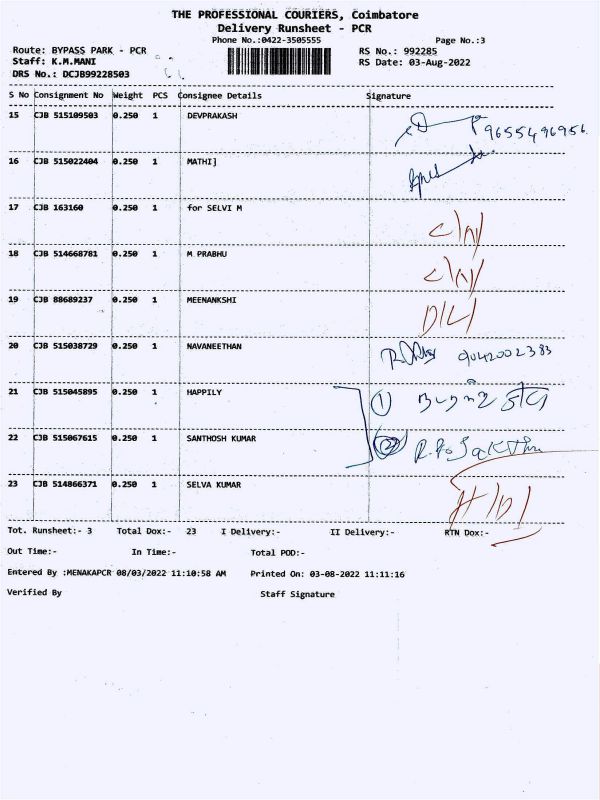 THE PROFESSIONAL COURIERS, Coimbatore
Delivery Runsheet - PCR
Phone No.:0422-3505555 Page No.:3
Route: BYPASS PARK - PCR RS No.: 992285
Staff: K.M.MANI RS Date: 03-Aug-2022
DRS No.: DCJB99228503
S No Consignment No Weight PCS Consignee Details Signature
15 CJB 515109503 0.250 1 DEVPRAKASH 9655496956
16 CJB 515022404 0.250 1 MATHI]
17 CJB 163160 0.250 1 for SELVI M
18 CJB 514668781 0.250 1 M PRABHU
19 CJB 88689237 0.250 1 MEENANKSHI D/L/
20 CJB 515038729 0.250 1 NAVANEETHAN 9042002383
21 CJB 515045895 0.250 1 HAPPILY 1
22 CJB 515067615 0.250 1 SANTHOSH KUMAR 2
23 CJB 514866371 0.250 1 SELVA KUMAR
Tot. Runsheet:- 3 Total Dox:- 23 I Delivery:- II Delivery:- RTN Dox:-
Out Time:- In Time:- Total POD:-
Entered By :MENAKAPCR 08/03/2022 11:10:58 AM Printed On: 03-08-2022 11:11:16
Verified By Staff Signature